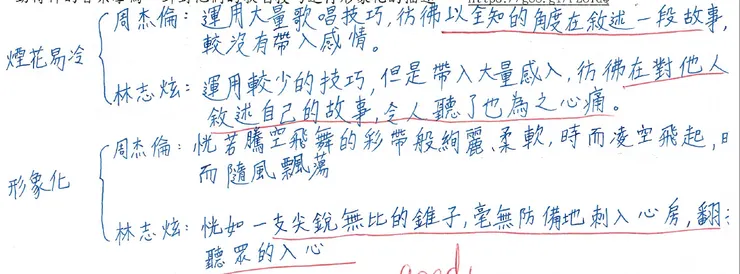 周杰倫：運用大量歌唱技巧，彷彿以全知的角度在敘述一段故事，
較沒有帶入感情。
煙花易冷
林志炫：運用較少的技巧，但是帶入大量感入，彷彿在對他人
敘述自己的故事，令人聽了也為之心痛。
周杰倫：恍若騰空飛舞的彩帶般絢麗、柔軟，時而凌空飛起，
而隨風飄蕩
形象化
林志炫：恍如一支尖銳無比的錐子，毫無防備地刺入心房，翻
聽眾的入心
good!